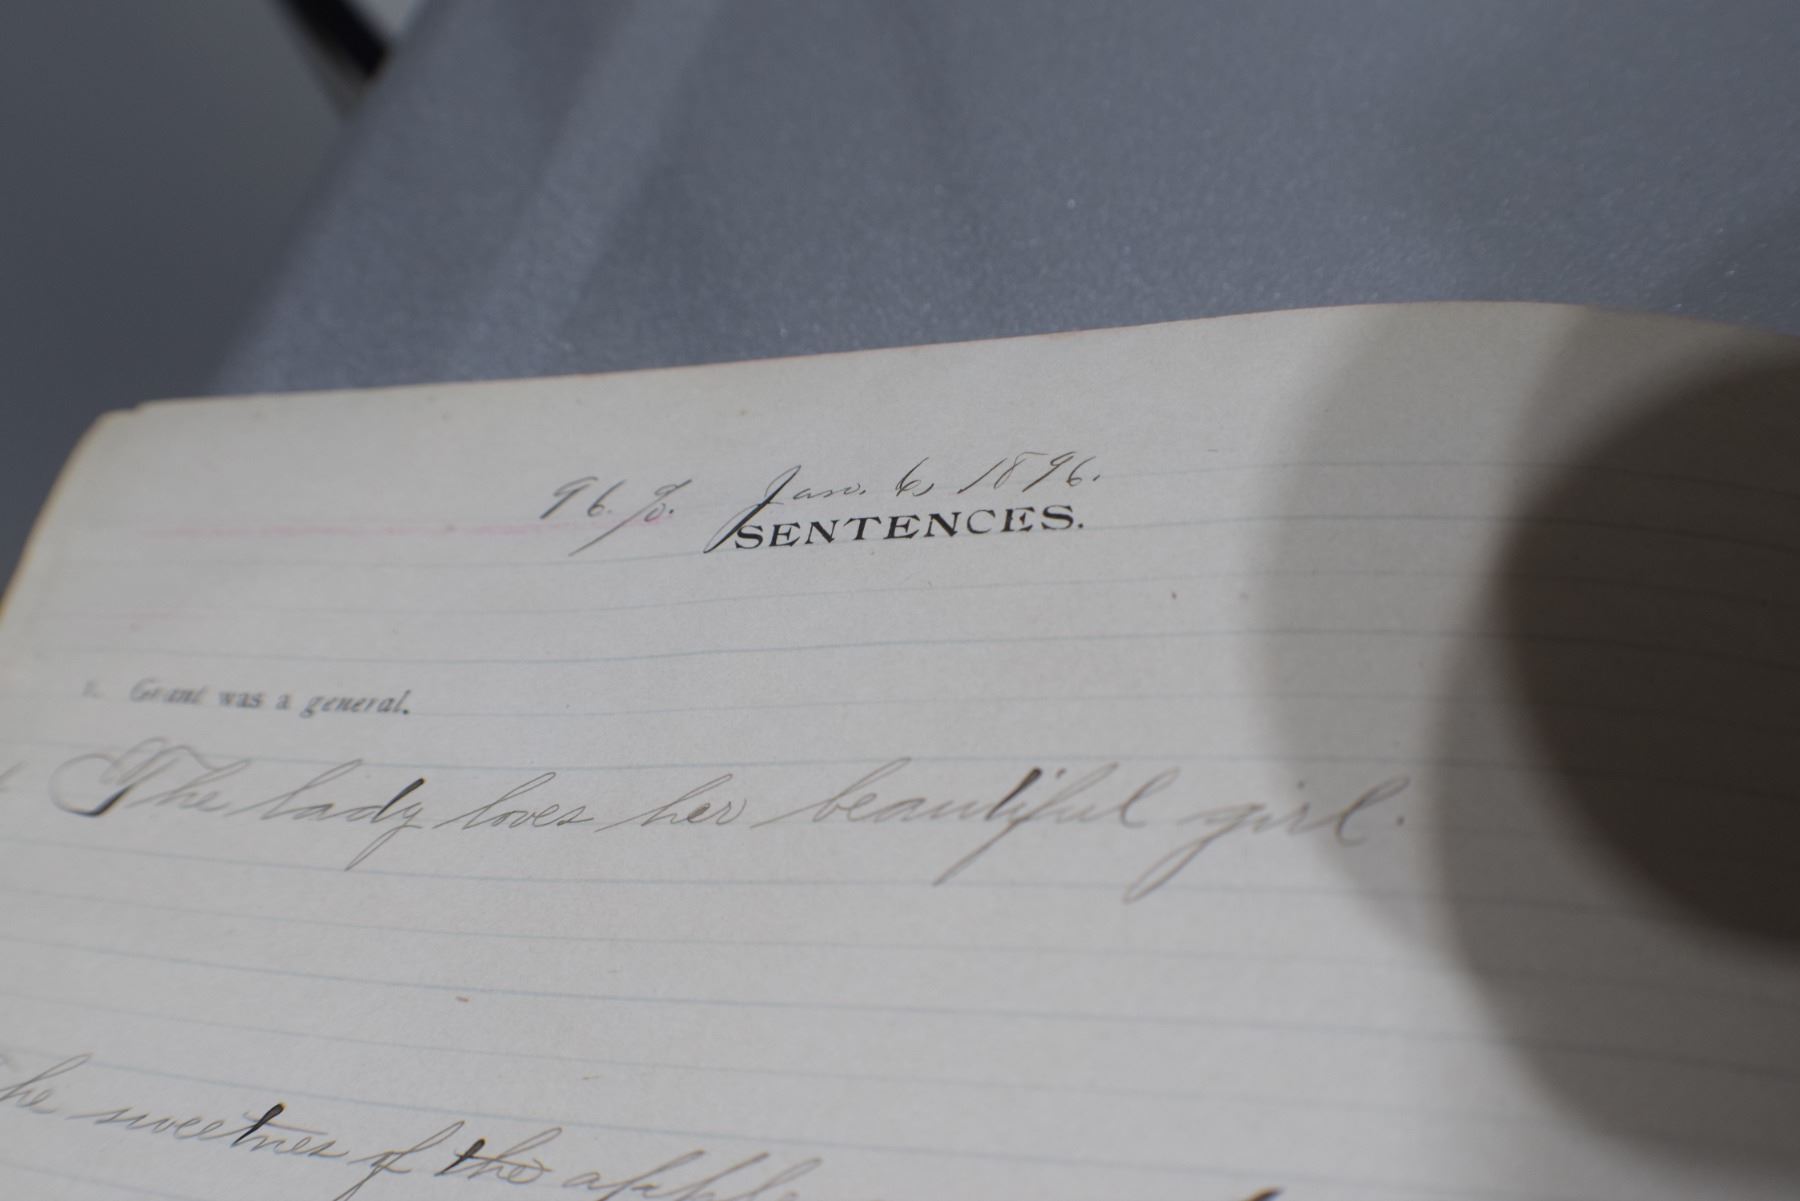 96.%. Jan. 6, 1896.
SENTENCES.
Grant was a general.
The lady loves her beautiful girl.
he sweetnes of the apple